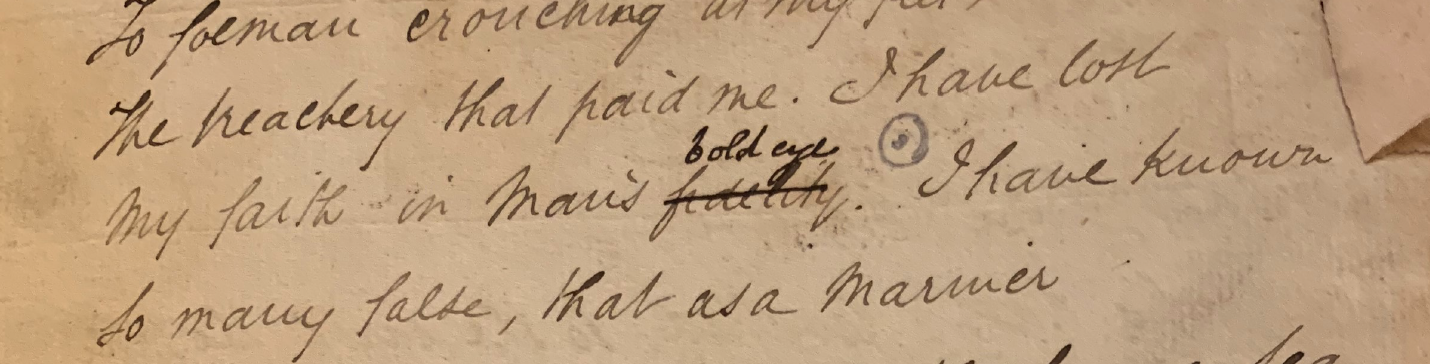 To foeman crouching at my feet
The treachery that paid me. I have lost
bold eye
My faith in Man's fidelity. I have known
So many false, that as a Mariner